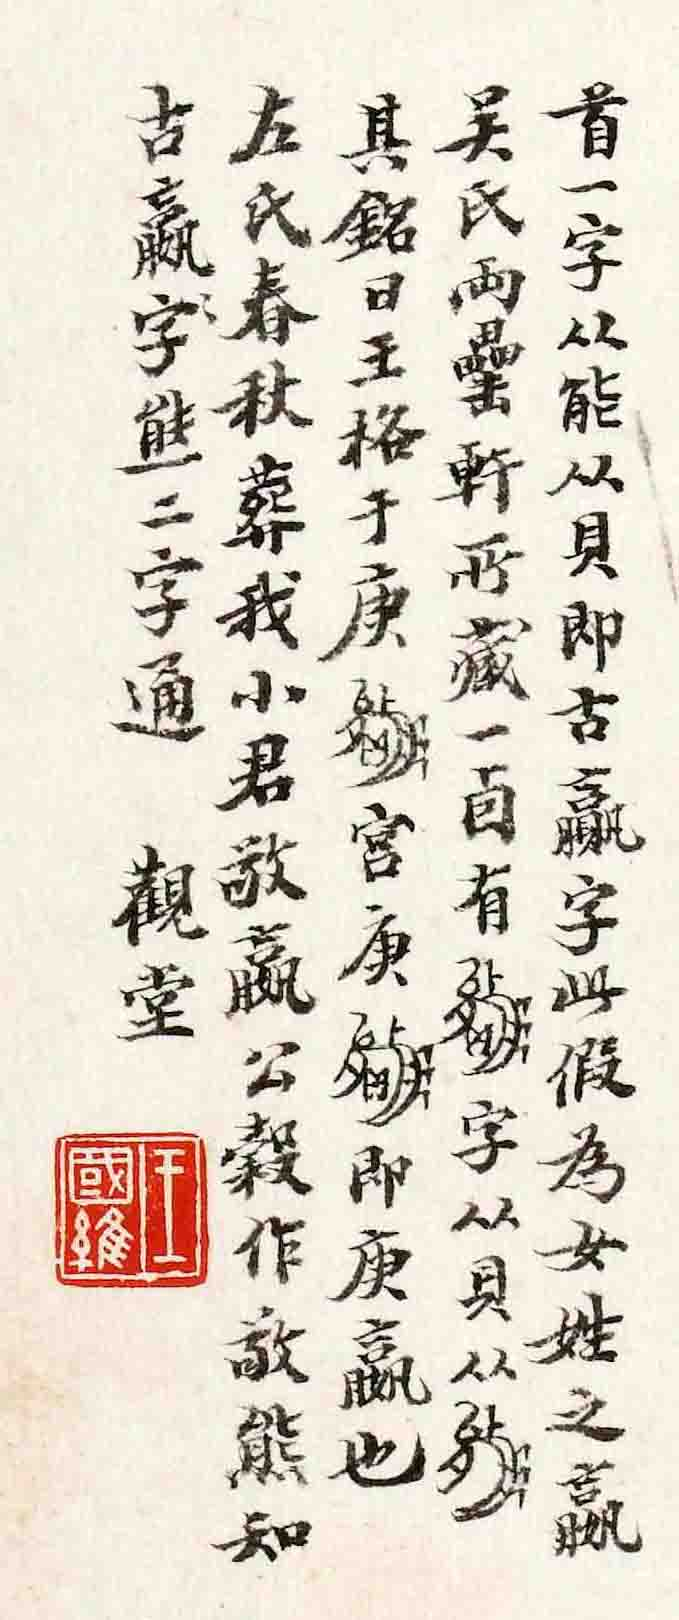 首一字从能从貝即古贏字此假為女姓之嬴
吳氏兩罍軒所藏一卣有字从貝从
其銘曰王格于庚宮庚即庚嬴也
左氏春秋葬我小君敬嬴公穀作敬熊知
古嬴字熊二字通 觀堂
王國維